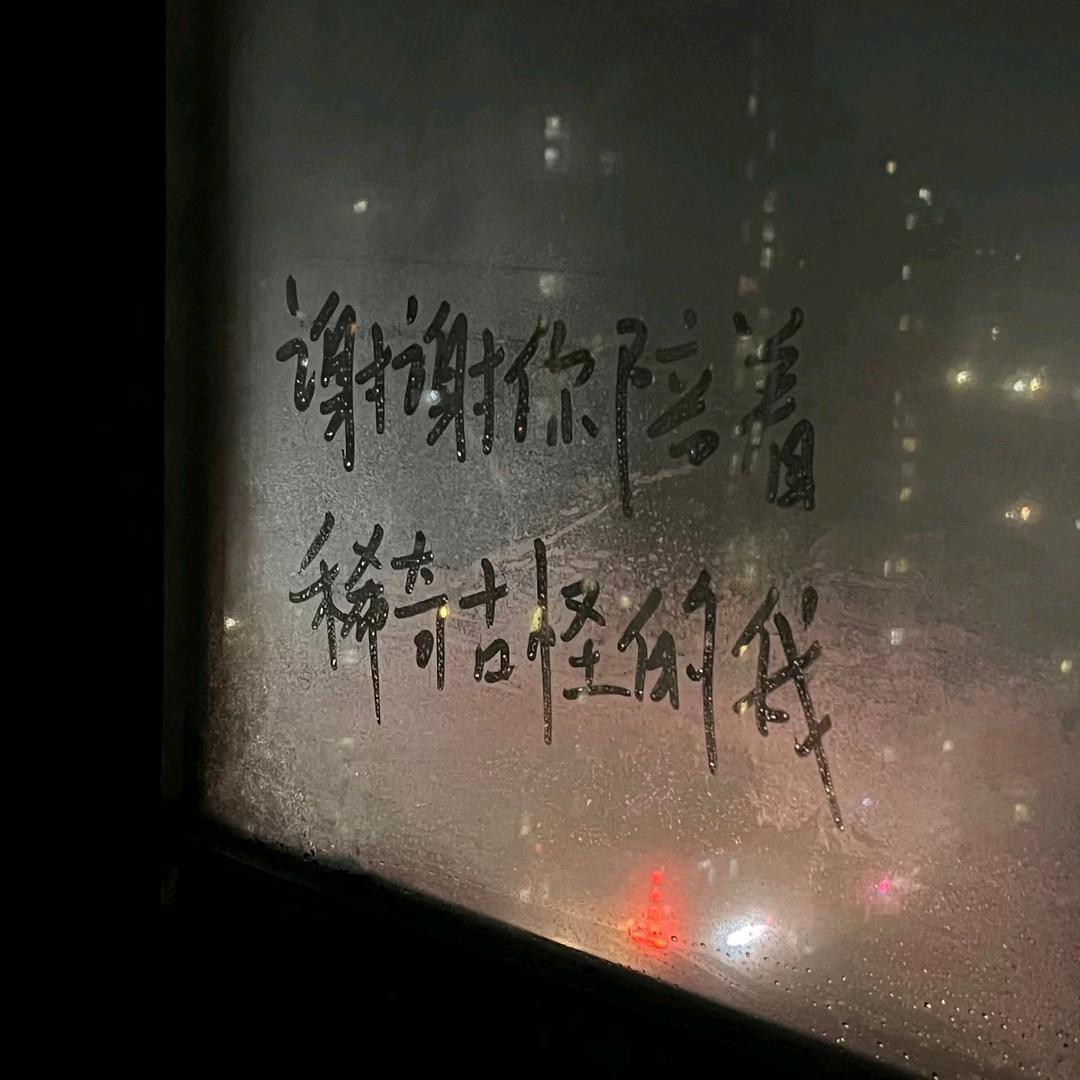 谢谢你陪着
稀奇古怪的我